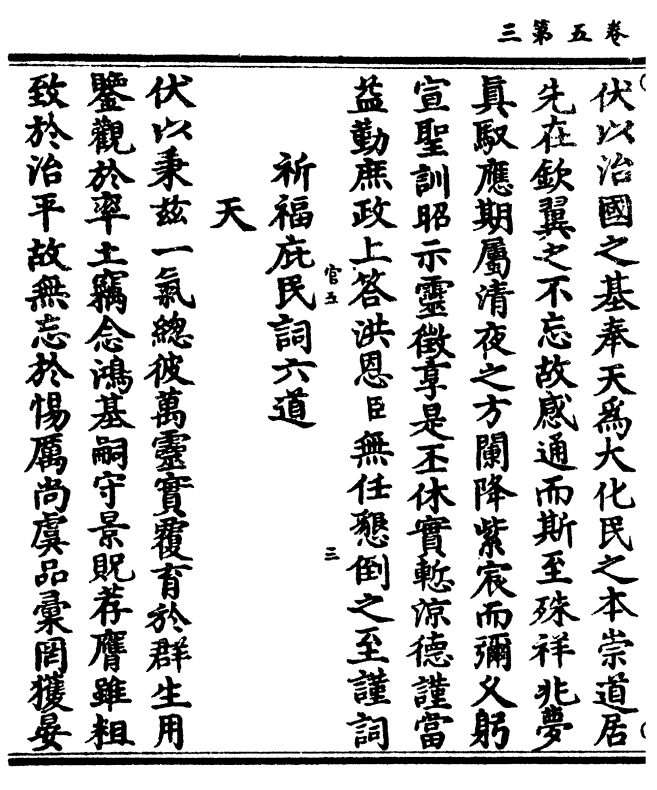 卷五第三
伏以治國之基奉天爲大化民之本崇道居
先在欽翼之不忘故感通而斯至殊祥兆夢
眞馭應期屬清夜之方闌降紫宸而彌久躬
宣聖訓昭示靈徵享是丕休實慙涼德謹當
益勤庶政上答洪恩臣無任懇倒之至謹詞
官五 三
祈福庇民詞六道
天
伏以秉玆一氣總彼萬靈實覆育於群生用
鑒觀於率土竊念鴻基嗣守景貺荐膺雖粗
致於治平故無忘於惕厲尚虞品彙罔獲晏